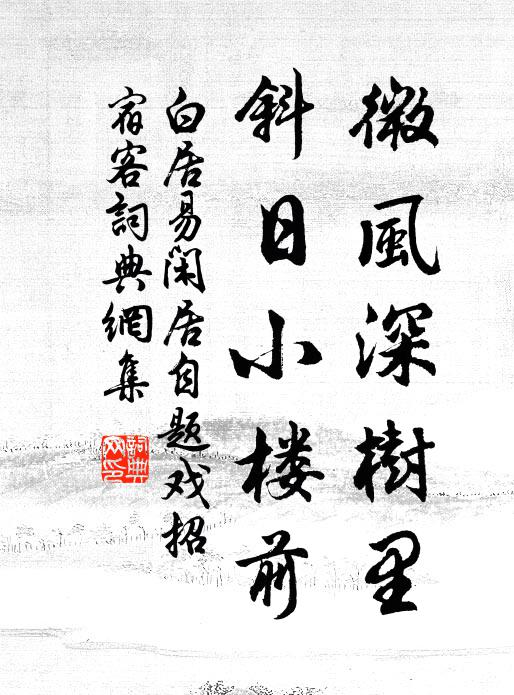 微風深樹里
斜日小楼前
白居易閑居自題戏招
宿客詞典網集
詞典
网印